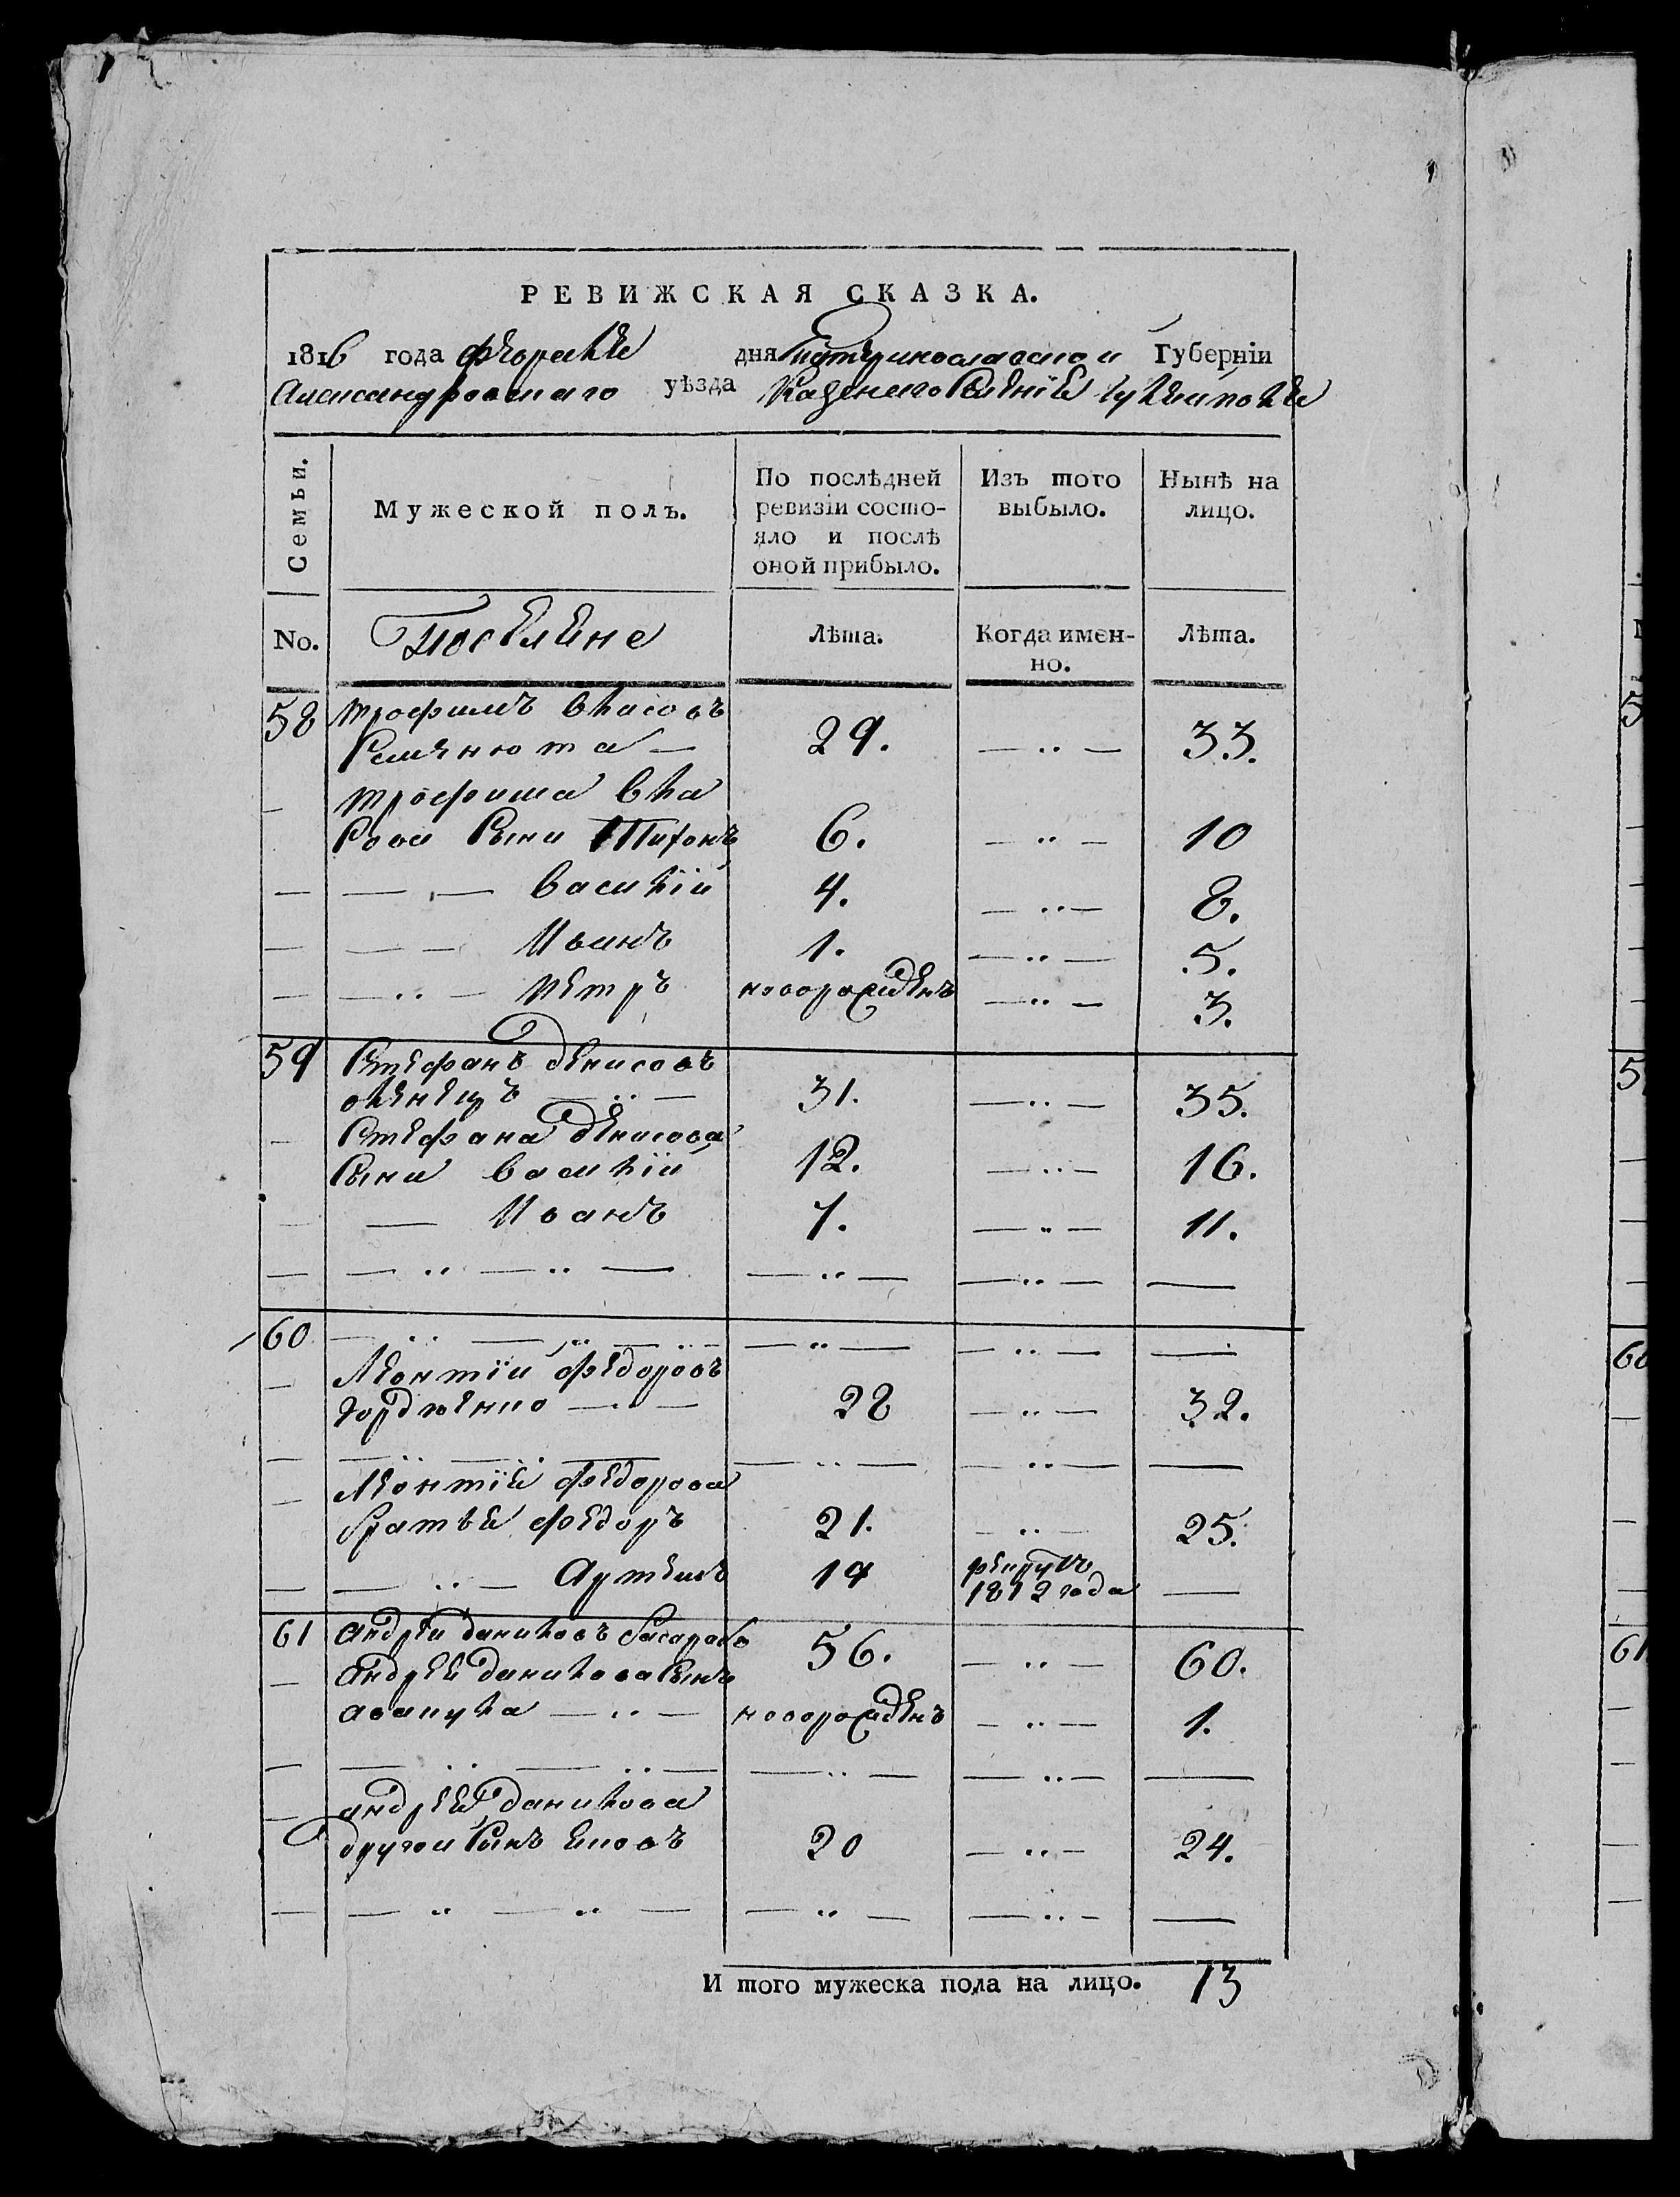 РЕВИЖСКАЯ СКАЗКА.
1816 года февраля дня Екатеринославской Губерніи
Александровскаго уѣзда Казеннаго Селенія
Семьи.
Мужеской полъ.
По послѣдней ревизіи состояло и послѣ оной прибыло.
Изъ того выбыло.
Нынѣ на лицо.
No.
Поселяне
Лѣта.
Когда именно.
Лѣта.
58 Трофимъ Власовъ
Семенюта — 29. — .. — 33.
Трофима Вла
сова сыни Тихонъ 6. — .. — 10
— — — Василій 4. — .. — 8.
— — — Иванъ 1. — .. — 5.
— — .. — Петръ новорожденъ — .. — 3.
59 Стефанъ Денисовъ
— .. — 31. — .. — 35.
Стефана Денисова
сыни Василій 12. — .. — 16.
— Иванъ 7. — .. — 11.
— — .. — .. — — .. — — .. — —
60 — .. — .. — .. — — .. — — .. — —
Леонтій Федоровъ
Гордѣенко — .. — 28 — .. — 32.
— — .. — .. — — .. — — .. — —
Леонтія Федорова
братья Федоръ 21. — .. — 25.
— — .. — Артемъ 19 рекрутъ 1812 года —
61 Андрей Даниловъ 56. — .. — 60.
Андрея Данилова сынъ
Вакула — .. — новорожденъ — .. — 1.
— — .. — .. — — .. — — .. — —
Андрея Данилова
другой сынъ Яковъ 20 — .. — 24.
— — .. — .. — — .. — — .. — —
И того мужеска пола на лицо. 13
5
5
60
61